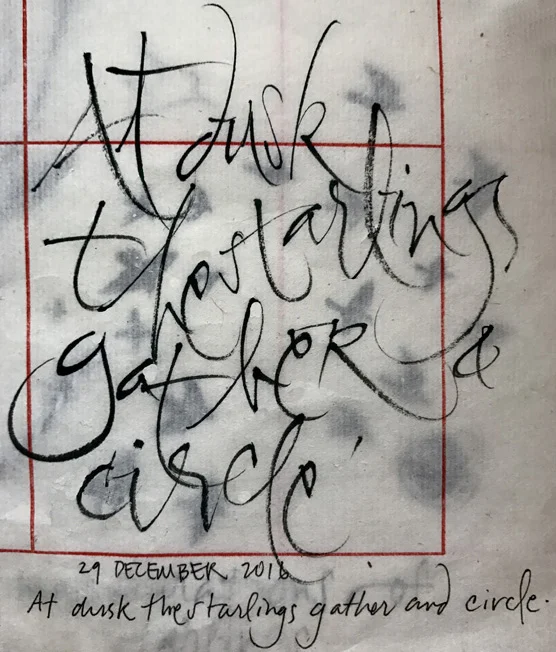 At dusk
the starlings
gather &
circle
29 DECEMBER 2016
At dusk the starlings gather and circle.